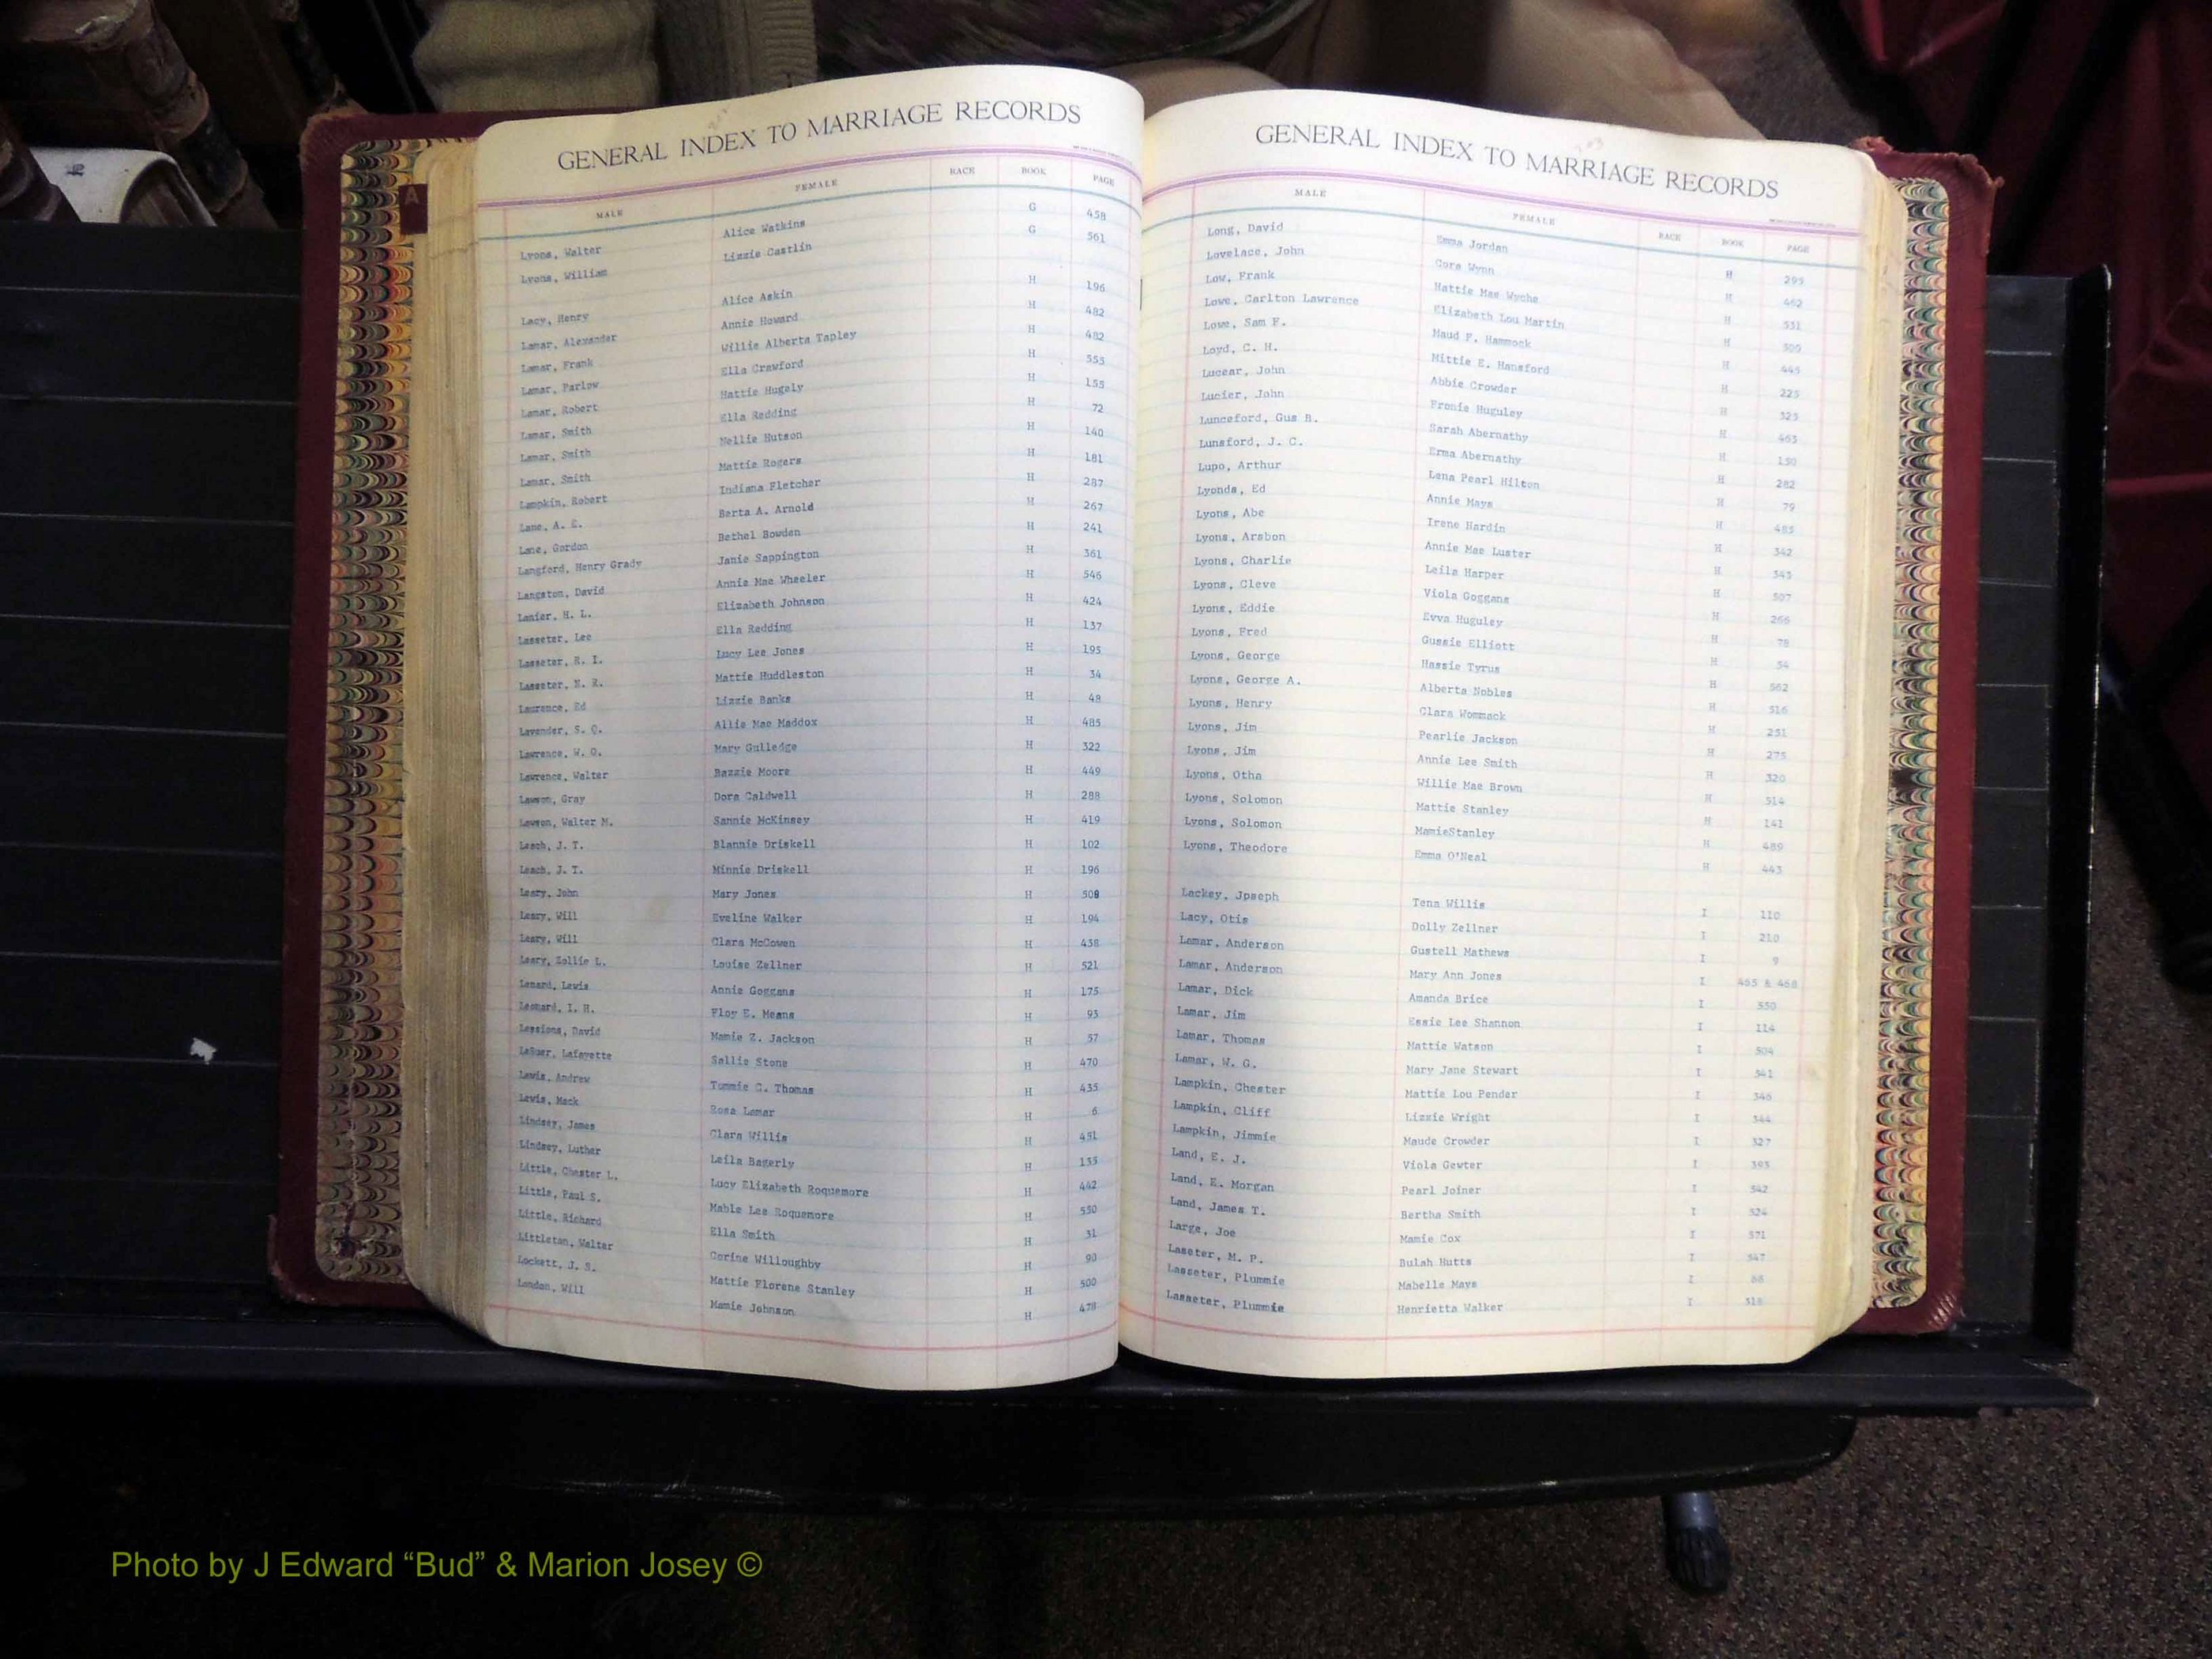 GENERAL INDEX TO MARRIAGE RECORDS
MALE FEMALE RACE BOOK PAGE
Lyons, Walter Alice Watkins G 458
Lyons, William Lizzie Castlin G 561
Lacy, Henry Alice Askin H 196
Lamar, Alexander Annie Howard H 482
Lamar, Frank Willie Alberta Tapley H 482
Lamar, Parlow Ella Crawford H 555
Lamar, Robert Hattie Hugely H 155
Lamar, Smith Ella Redding H 72
Lamar, Smith Nellie Hutson H 140
Lamar, Smith Mattie Rogers H 181
Lampkin, Robert Indiana Fletcher H 287
Lane, A. E. Berta A. Arnold H 267
Lane, Gordon Bethel Bowden H 241
Langford, Henry Grady Janie Sappington H 361
Langston, David Annie Mae Wheeler H 546
Lanier, H. L. Elizabeth Johnson H 424
Lasseter, Lee Ella Redding H 137
Lasseter, R. I. Lucy Lee Jones H 195
Lasseter, N. R. Mattie Huddleston H 34
Laurence, Ed Lizzie Banks H 48
Lavender, S. O. Allie Mae Maddox H 485
Lawrence, W. O. Mary Gulledge H 322
Lawrence, Walter Bazzie Moore H 449
Lawson, Gray Dora Caldwell H 288
Lawson, Walter M. Sannie McKinsey H 419
Leach, J. T. Blannie Driskell H 102
Leach, J. T. Minnie Driskell H 196
Leary, John Mary Jones H 508
Leary, Will Eveline Walker H 194
Leary, Will Clara McCowen H 438
Leary, Zollie L. Louise Zellner H 521
Lenard, Lewis Annie Goggans H 175
Leonard, I. H. Floy E. Means H 93
Lessions, David Mamie Z. Jackson H 57
LeSuer, Lafayette Sallie Stone H 470
Lewis, Andrew Tommie C. Thomas H 435
Lewis, Mack Rosa Lamar H 6
Lindsey, James Clara Willis H 451
Lindsey, Luther Leila Bagerly H 133
Little, Chester L. Lucy Elizabeth Roquemore H 442
Little, Paul S. Mable Lee Roquemore H 550
Little, Richard Ella Smith H 31
Littleton, Walter Corine Willoughby H 90
Lockett, J. S. Mattie Florene Stanley H 500
London, Will Mamie Johnson H 478
GENERAL INDEX TO MARRIAGE RECORDS
MALE FEMALE RACE BOOK PAGE
Long, David Emma Jordan H 295
Lovelace, John Cora Wynn H 462
Low, Frank Hattie Mae Wyche H 531
Lowe, Carlton Lawrence Elizabeth Lou Martin H 509
Lowe, Sam F. Maud F. Hammock H 445
Loyd, C. H. Mittie E. Hansford H 225
Lucear, John Abbie Crowder H 323
Lucier, John Fronie Huguley H 463
Lunceford, Gus R. Sarah Abernathy H 150
Lunsford, J. C. Erma Abernathy H 282
Lupo, Arthur Lena Pearl Hilton H 79
Lyonds, Ed Annie Mays H 485
Lyons, Abe Irene Hardin H 342
Lyons, Arsbon Annie Mae Luster H 543
Lyons, Charlie Leila Harper H 507
Lyons, Cleve Viola Goggans H 266
Lyons, Eddie Evva Huguley H 78
Lyons, Fred Gussie Elliott H 54
Lyons, George Hassie Tyrus H 562
Lyons, George A. Alberta Nobles H 516
Lyons, Henry Clara Wommack H 251
Lyons, Jim Pearlie Jackson H 275
Lyons, Jim Annie Lee Smith H 320
Lyons, Otha Willie Mae Brown H 514
Lyons, Solomon Mattie Stanley H 141
Lyons, Solomon MamieStanley H 489
Lyons, Theodore Emma O'Neal H 443
Lackey, Jpseph Tena Willis I 110
Lacy, Otis Dolly Zellner I 210
Lamar, Anderson Gustell Mathews I 9
Lamar, Anderson Mary Ann Jones I 465 & 468
Lamar, Dick Amanda Brice I 550
Lamar, Jim Essie Lee Shannon I 114
Lamar, Thomas Mattie Watson I 504
Lamar, W. G. Mary Jane Stewart I 541
Lampkin, Chester Mattie Lou Pender I 346
Lampkin, Cliff Lizzie Wright I 344
Lampkin, Jimmie Maude Crowder I 327
Land, E. J. Viola Gewter I 393
Land, E. Morgan Pearl Joiner I 342
Land, James T. Bertha Smith I 524
Large, Joe Mamie Cox I 571
Laseter, M. P. Bulah Hutts I 547
Lasseter, Plummie Mabelle Mays I 88
Lasseter, Plummie Henrietta Walker I 318
Photo by J Edward “Bud” & Marion Josey ©